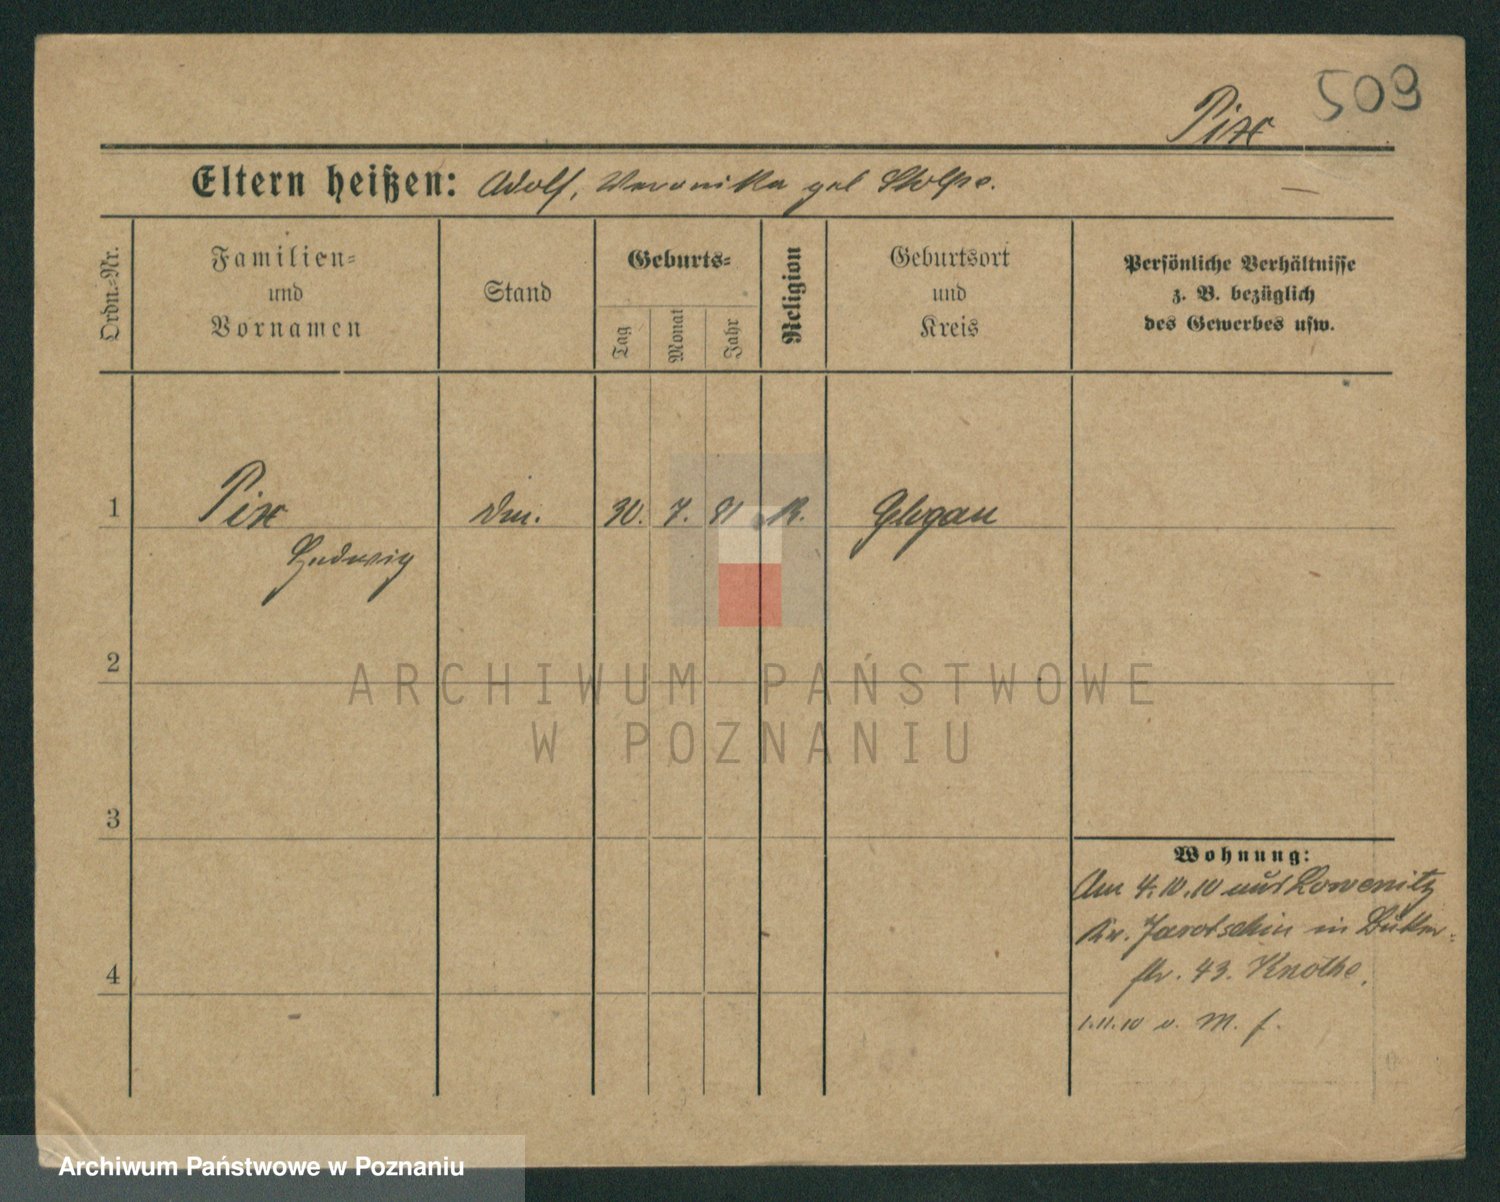 509
Pix
Eltern heißen: Adolf, Veronika geb Stolpe.
Ordn.-Nr.
Familien- und Vornamen
Stand
Geburts-
Tag
Monat
Jahr
Religion
Geburtsort und Kreis
Persönliche Verhältnisse
z. B. bezüglich
des Gewerbes usw.
1 Pix 30. 7. 81 K. Glogau
Hedwig
2
ARCHIWUM PAŃSTWOWE
W POZNANIU
3
4
Wohnung:
Am 4.10.10 aus
Kr. Jarotschin in
str. 43. Knothe.
1.11.10 v. M. f.
Archiwum Państwowe w Poznaniu